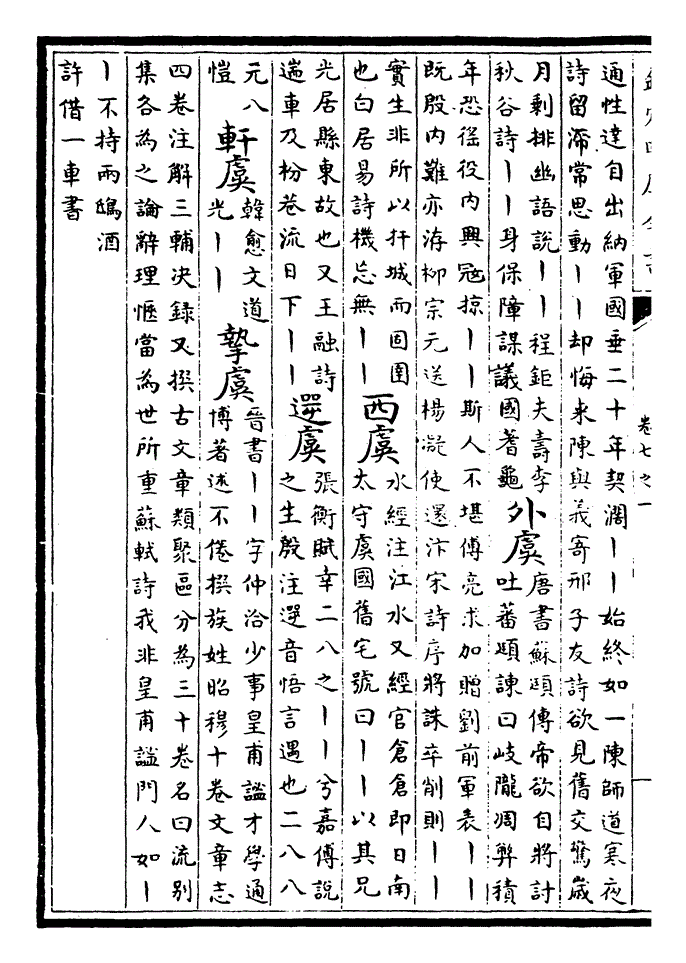 卷七之一
通性達自出納軍國垂二十年契濶丨丨始終如一陳師道寒夜
詩留滯常思動丨丨却悔来陳與義寄邢子友詩欲見舊交驚歲
月剰排幽語說丨丨程鉅夫壽李
秋谷詩丨丨身保障謀議國蓍龜
外虞
唐書蘇頲傳帝欲自將討
吐蕃頲諫曰岐隴凋弊積
年恐徭役内興冦掠丨丨斯人不堪傅亮求加贈劉前軍表丨丨
既殷内難亦洊柳宗元送楊凝使還汴宋詩序將誅卒削則丨丨
實生非所以扞城而固圉
也白居易詩機忘無丨丨
西虞
水經注江水又經官倉倉即日南
太守虞國舊宅號曰丨丨以其兄
光居縣東故也又王融詩
遄車及枌巷流日下丨丨
遻虞
張衡賦幸二八之丨丨兮嘉傅說
之生殷注遻音悟言遇也二八八
元八
愷
軒虞
韓愈文道
光丨丨
摯虞
晉書丨丨字仲洽少事皇甫謐才學通
博著述不倦撰族姓昭穆十卷文章志
四卷注解三輔决録又撰古文章類聚區分為三十卷名曰流别
集各為之論辭理愜當為世所重蘇軾詩我非皇甫謐門人如丨
丨不持兩鴟酒
許借一車書